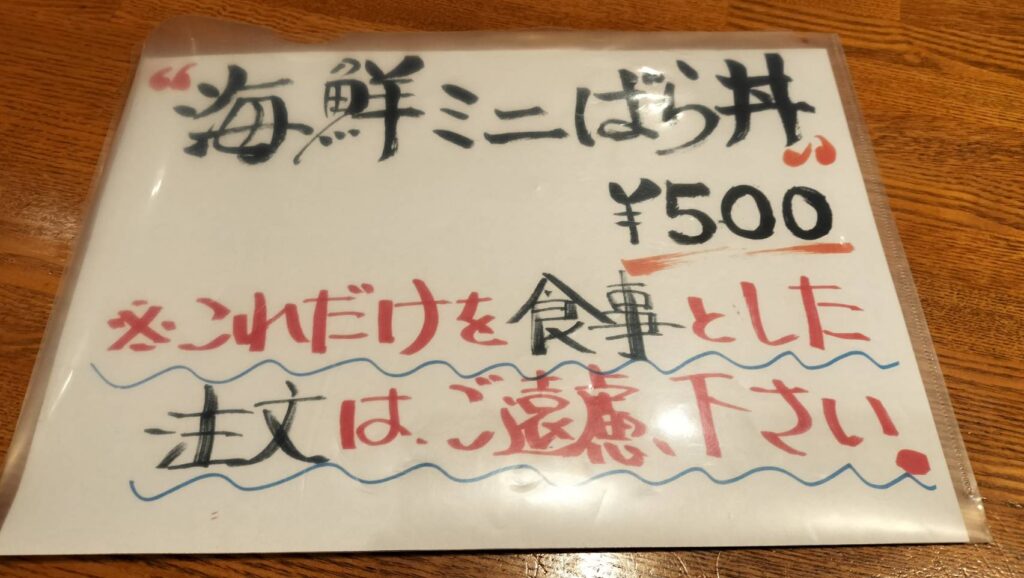 “海鮮ミニばら丼”
¥500
※これだけを食事とした
注文は、ご遠慮、下さい.